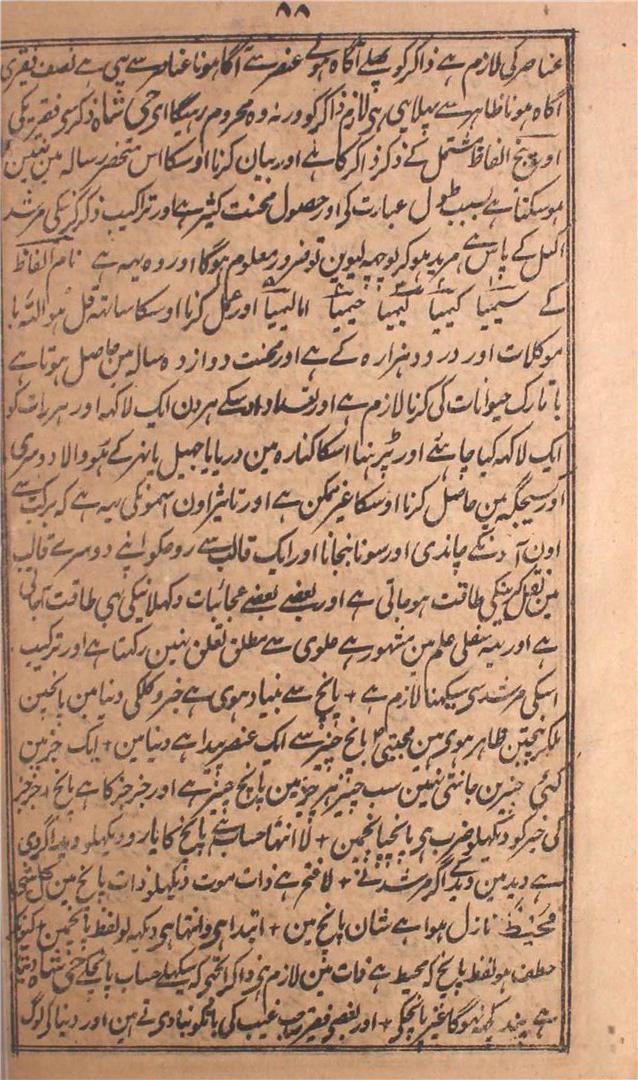 ۸۸
عناصر کی لازم ہے ذاکر کو پہلے آگاہ ہوئے عنصر سے آگا ہونا عناصر سے ہی ہے نصف فقیری
آگاہ ہونا ظاہر سے پہلا ہی ہی لازم ذاکر کو ورنہ وہ محروم رہیگا ای حی شاہ ذکر سی فقیر یکی
اور پنج الفاظ مشتمل کے ذکر ذاکر کا ہے اور بیان کرنا اوسکا اس مختصر رسالہ مین نہین
ہو سکتا ہے بسبب طول عبارت کی اور حصول محنت کثیر ہے اور تراکیب ذکر کرنیکی مرشد
اکمل کے پاس سے مرید ہو کر پوچہہ لیوین تو ضرور معلوم ہوگا اور وہ یہہ ہے نام الفاظ
کے سیمیا کیمیا لیمیا حیمیا امالیمیا اور عمل کرنا اوسکا ساتہہ قل ہو اللہ با
موکلات اور درود ہزارہ کے ہے اور محنت دوازدہ سالہ مین حاصل ہوتا ہے
با تارک حیوانات کی کرنا لازم ہے اور تعداد اوسکے ہر دن ایک لاکہہ اور ہر رات کو
ایک لاکہہ کیا چاہئے اور پڑہنا اسکا کنارہ مین دریا یا جہیل یا نہر کے ہو والا دوسری
اور کسیجگہ مین حاصل کرنا اوسکا غیر ممکن ہے اور تاثیر اون اسمونکی یہہ ہے کہ برکت سے
اون آدمیکے چاندی اور سونا بنجانا اور ایک قالب سے روحکو اپنے دوسرے قالب
مین نقل کرنیکی طاقت ہو جاتی ہے اور بعضے بعضے عجائبات دکہلانیکی بہی طاقت آجاتی
ہے اور یہہ سفلی علم مین مشہور ہے علوی سے مطلق تعلق نہین رکہتا ہے اور ترکیب
اسکی مرشد سی سیکہنا لازم ہے + پانچ سے بنیاد ہوی ہے جز و کلکی دنیا مین پانچین
ملکر پنجتن ظاہر ہوی ہین مجتبی + پانچ چیز سے ایک عنصر پیدا ہے دنیا مین + ایک جز مین
کئی چیزین جانتی نہین سب چیز ہر جز مین پانچ چیز ہے اور جز جز کا ہے پانچ + جز جز
کی خبر کو دیکہلو ضرب ہی پانچا پانچمین + لا انتہا حساب ہے پانچ کا یارو دیکہلو دیدا گردی
ہے دید مین دیدکے اگر مرشد نے + لا فہم ہے ذات ہوت دیکہلو ذات پانچ مین
محیط نازل ہوا ہے شان پانچ مین + ابتدا ہی و انتہا ہی دیکہہ لو لفظ پانچمین +
ہو لفظ پانچ کہ محیط ہے ذات مین لازم ہی ذاکر اتجہی کہ سیکہلے حساب پانچکے حی شاہ
ہے کچہہ نہوگا غیر پانچکی + اور بعضی فقیر صاحب غیب کی بانگو بنیاد دی تے ہین اور دنیا کی لوگ